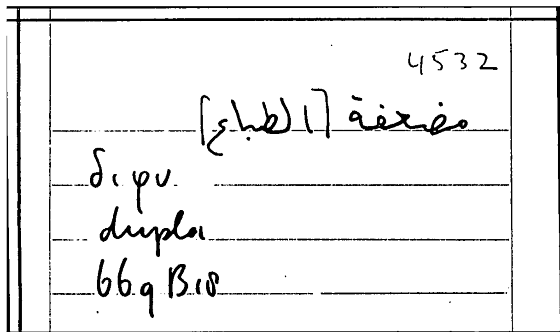 4532
مضعفة [الطباع]
διφυ
dupla
669 B18